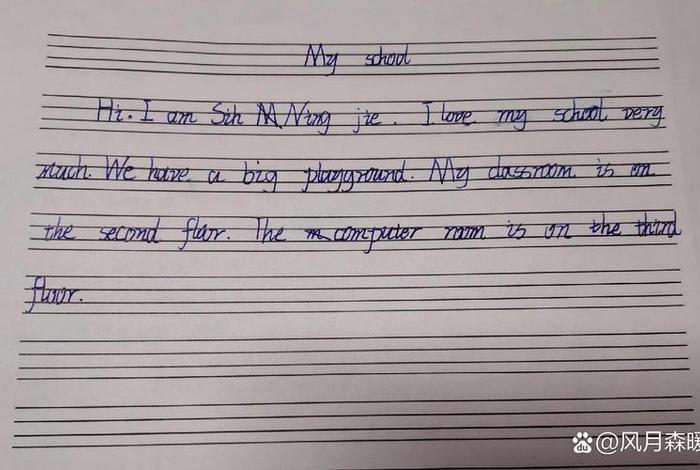 My school
Hi. I am Sih Ning jie. I love my school very
much. We have a big playgground. My classroom is on
the second floor. The computer room is on the third
floor.
du @风月森暖